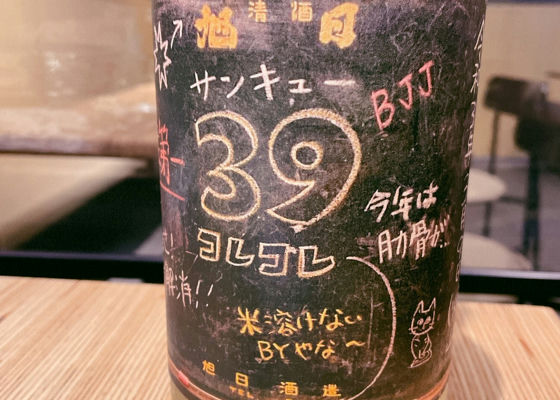 清酒
旭日
サンキュー
39
BJJ
コレコレ
今年は
肋骨が!
消!!
米溶けない
BYやな〜
旭日酒造
TEL